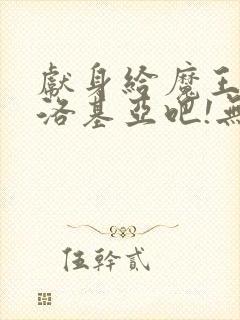 獻身給魔王
洛基亞吧!無
伍幹貳